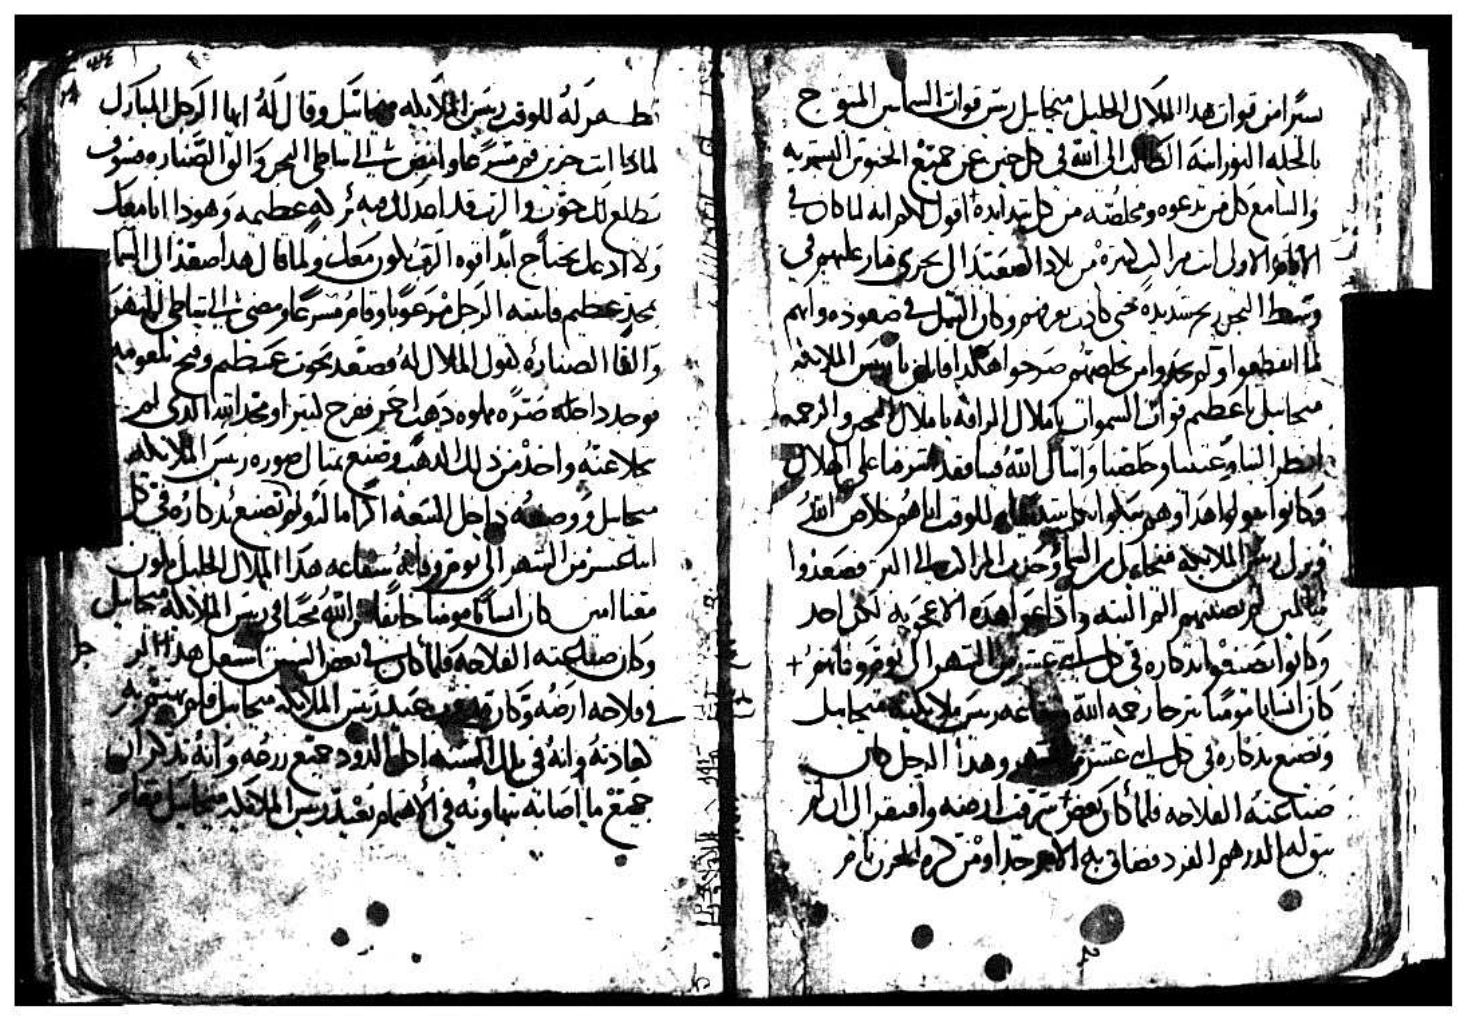 يسيرا من قوات هذا الملاك الجليل ميخاييل ريس قوات السماييين المتوج
بالحله النورانيه الطالب الى الله في كل حين عن جميع الجنوس البشريه
والسامع كل من يدعوه ومخلصه من كل شدايده اقول لكم انه لما كان في
الاولى من بلاد الصعيد الى بحرى فثار عليهم في
وسط البحر ريح شديده حتى كادت تغرقهم وكان النيل في صعوده وانهم
لما انقطعوا ولم يجدوا من يخلصهم صرخوا هكذا قايلين يا ريس الملايكه
ميخاييل يا عظيم قوات السموات يا ملاك الرافه يا ملاك الخير والرحمه
انظر الينا وعيننا وخلصنا واسال الله فينا فقد اشرفنا على الهلاك
وكانوا يقولوا هذا وهم للوقت اتاهم خلاص الله
ونزل ريس الملايكه ميخاييل من السما وجذب المراكب الى البر فصعدوا
سالمين لم يصيبهم الم البته واذاعوا هذه الاعجوبه لكل احد
وكانوا يصنعوا تذكاره في كل عشر من الشهر الى يوم وفاتهم
كان انسانا مومنا رحمه الله ريس ملايكته ميخاييل
ويصنع تذكاره في كل عشر الشهر وهذا الرجل كان
صناعته الفلاحه فلما كان بعض ارضه وافتقر الى ان لم
له الدرهم الفرد فضاق به الامر جدا ومن كثرة الحزن
ظهر له للوقت ريس الملايكه ميخاييل وقال له ايها الرجل المبارك
لماذا انت حزين قم مسرعا وامض الى شاطى البحر والق الصناره فسوف
يطلع لك حوت والرب قد اعد لك فيه عظيمه وهودا انا معك
ولا ادعك تحتاج ابدا قوه الرب تكون معك ولما قال هذا صعد الى السما
بمجد عظيم فانتبه الرجل مرعوبا وقام مسرعا ومضى الى شاطى النهر
والقا الصناره لقول الملاك له فصعد بحوت عظيم وفتح بلعومه
فوجد داخله صره مملوه ذهب احمر ففرح كثيرا ومجد الله الدى لم
يتخلا عنه واخذ من ذلك الذهب وصنع تمثال صوره ريس الملايكه
ميخاييل ووضعه داخل البيعه اكراما له ولم يصنع تذكاره في كل
اثنا عشر من الشهر الى يوم وفاته شفاعه هذا الملاك الجليل تكون
معنا امين كان انسانا مومنا خايفا من الله محبا في ريس الملايكه ميخاييل
وكان صناعته الفلاحه فلما كان في بعض السنين اشتغل هذا
في فلاحه ارضه وكان عيد ريس الملايكه ميخاييل فلم يهتم به
كعادته وانه في تلك السنه اكل الدود جميع زرعه وانه تذكر ان
جميع ما اصابه تهاونه في الاهتمام بعيد ريس الملايكه ميخاييل